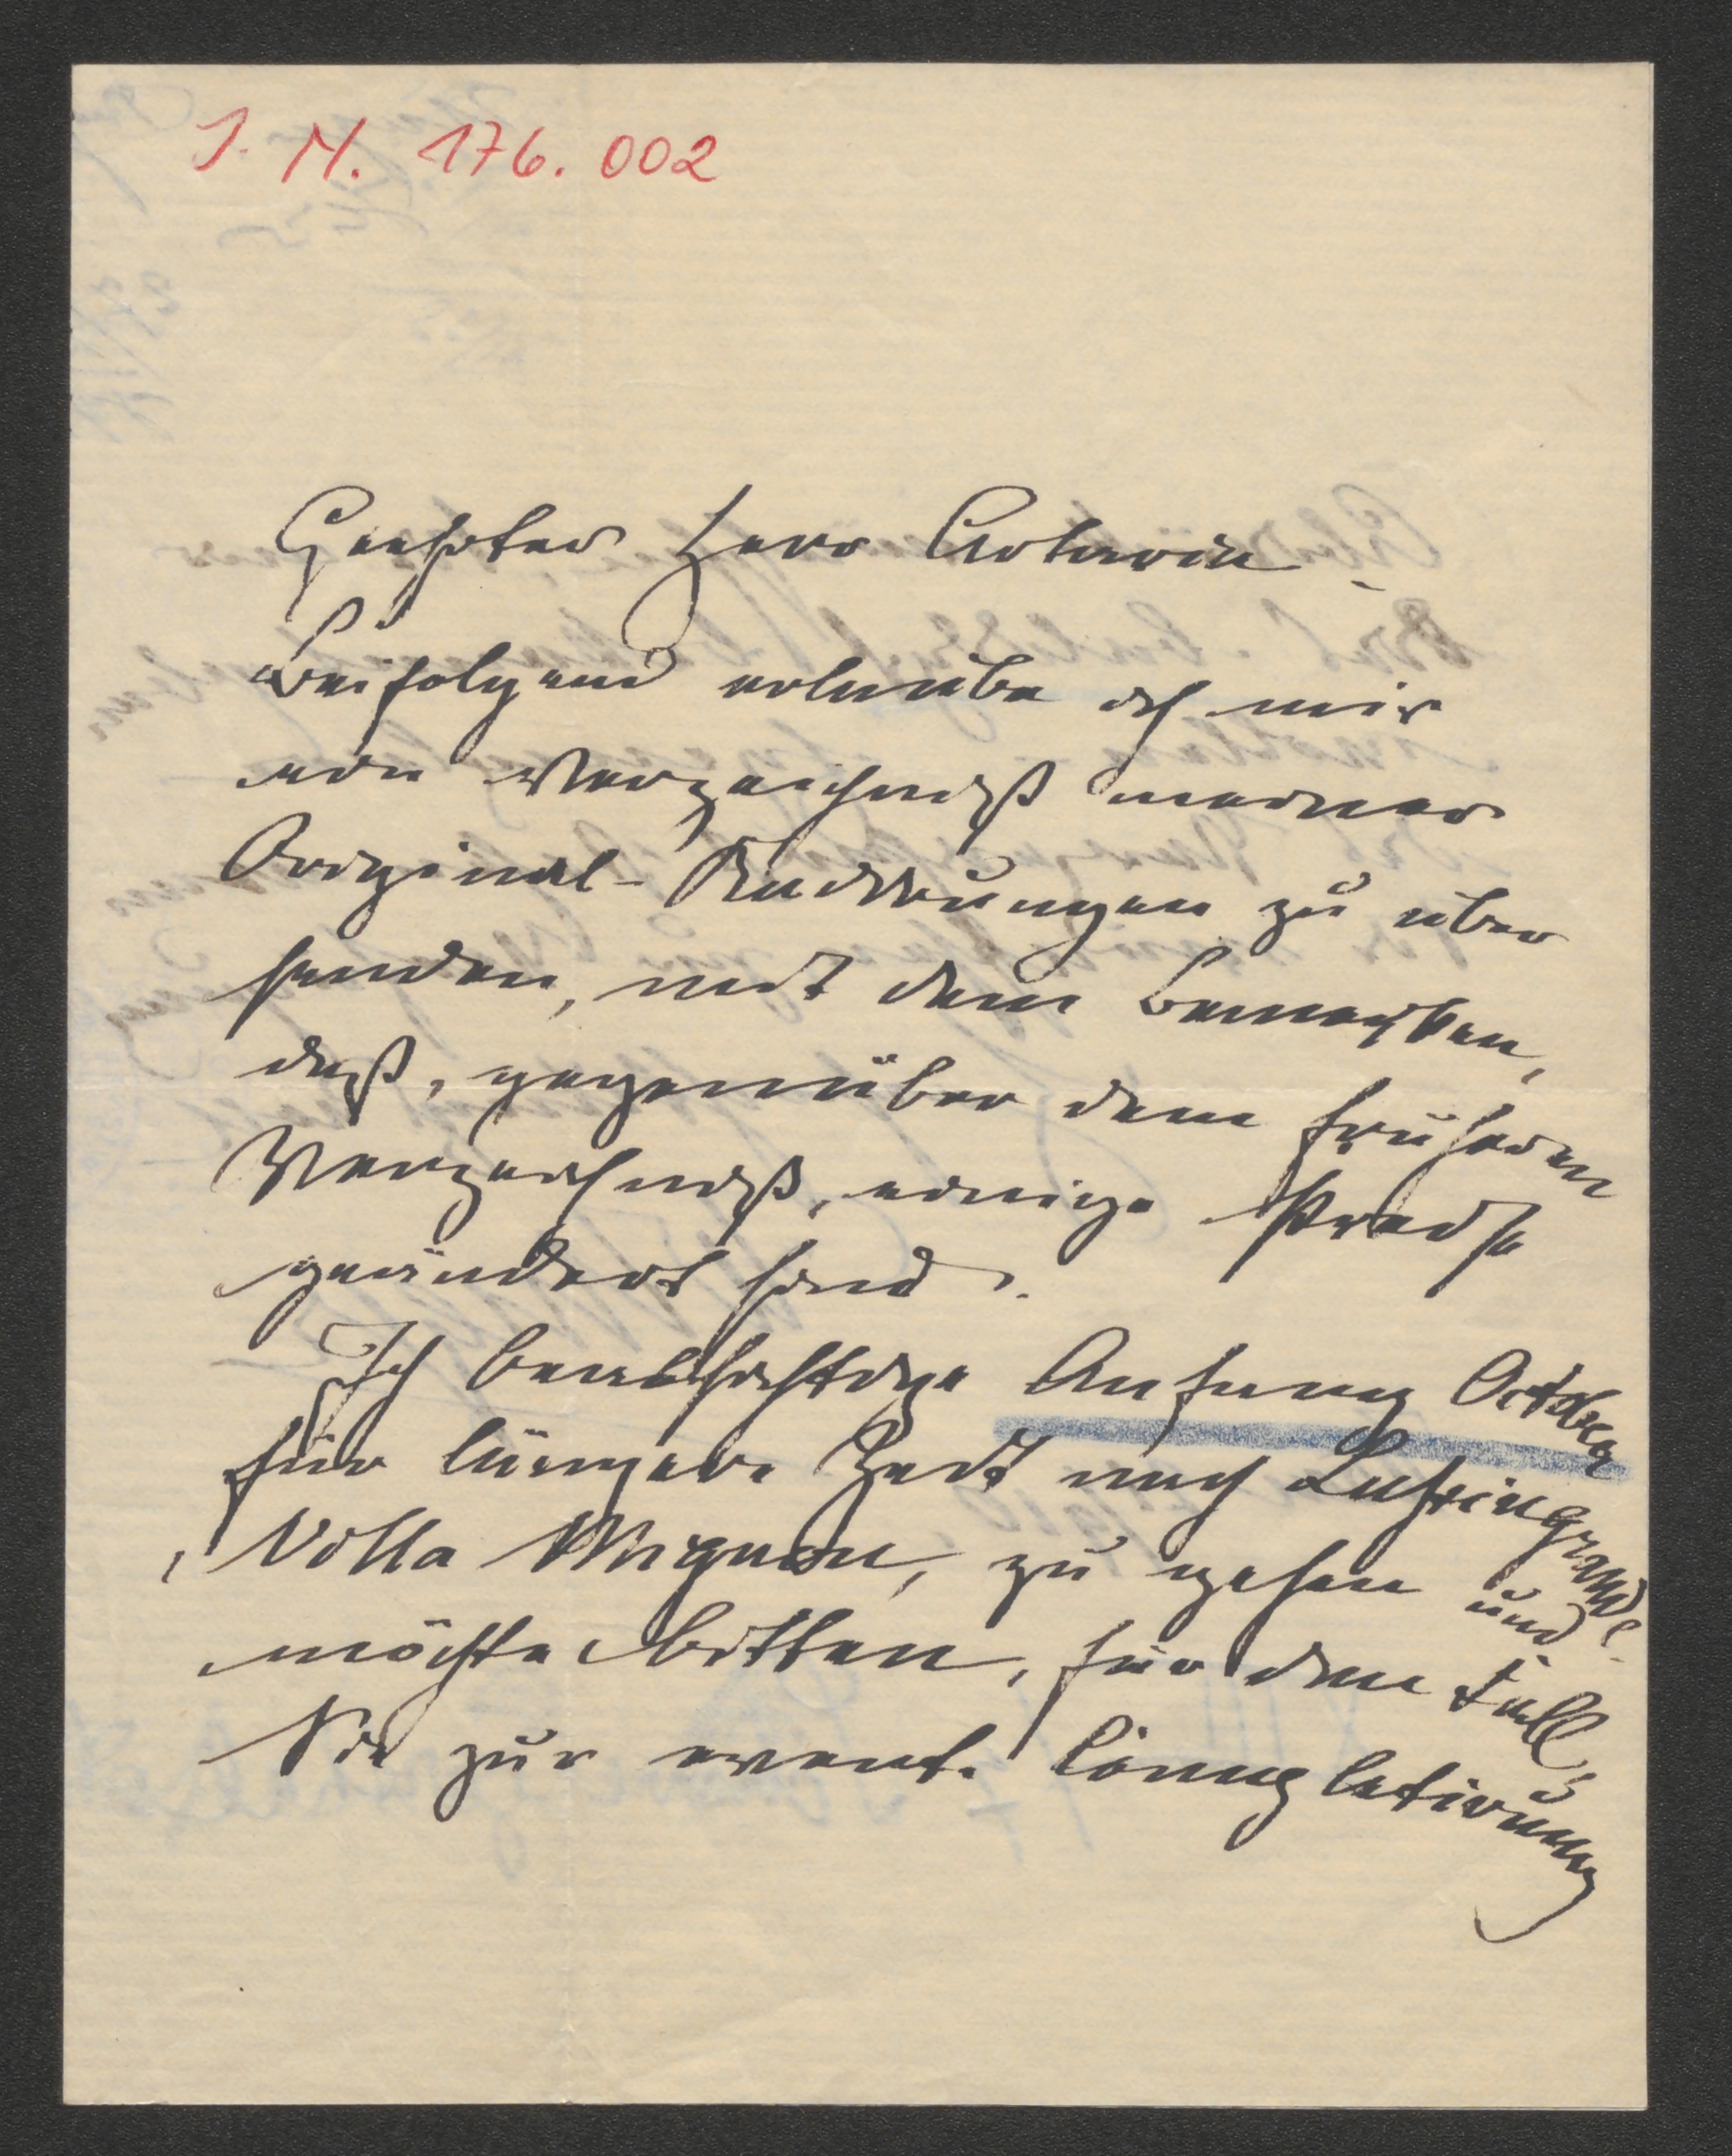 I. N. 176.002
Geehrter Herr Artaria
Beifolgend erlaube ich mir
ein Verzeichniß meiner
Original-Radirungen zu über
senden, mit dem Bemerken,
daß, gegenüber dem früheren
Verzeichniß, einige Preise
geändert sind.
Ich beabsichtige Anfang October
für längere Zeit nach Lussingrande
Villa Mignon, zu gehen und
möchte bitten, für den Fall
Sie zur event. Completirung